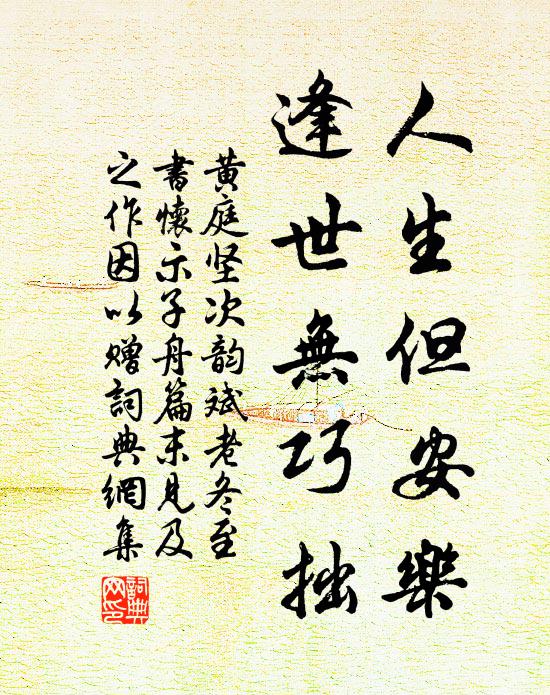 人生但安樂
逢世無巧拙
黄庭坚次韵斌老冬至
書懷示子舟篇末見及
之作因以赠詞典網集
詞典网印